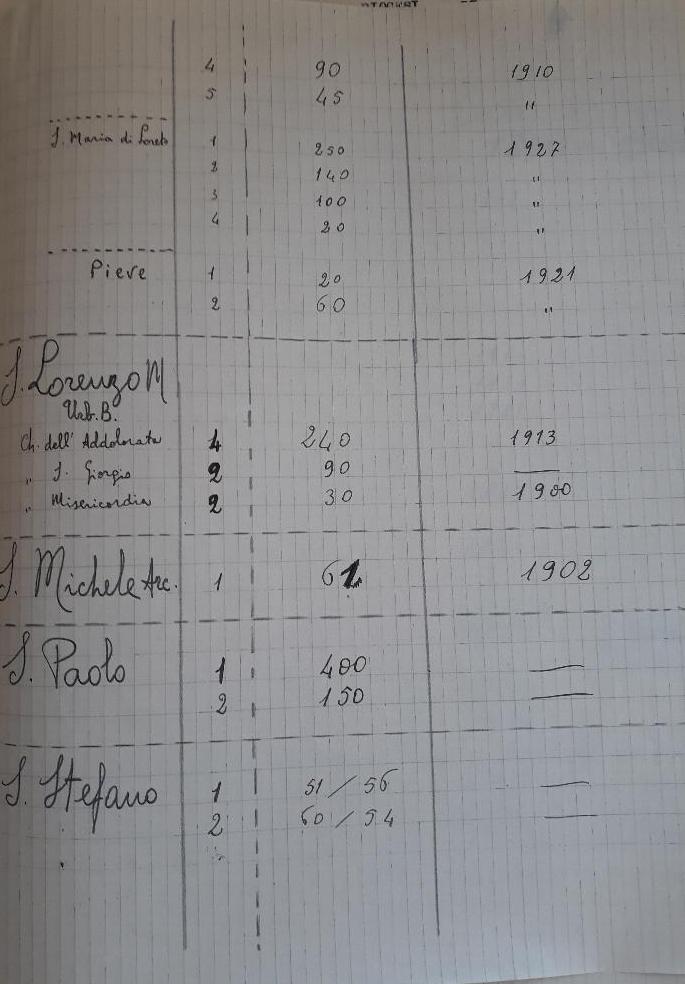 4 90 1910
5 45 "
S. Maria di Loreto 1 250 1927
2 140 "
3 100 "
4 20 "
Pieve 1 20 1921
2 60 "
S. Lorenzo M
Urb. B.
Ch. dell' Addolorata 4 240 1913
" S. Giorgio 2 90 —
" Misericordia 2 30 1900
S. Michele Arc. 1 61 1902
S. Paolo 1 400 —
2 150 —
S. Stefano 1 51 / 56 —
2 60 / 54 —